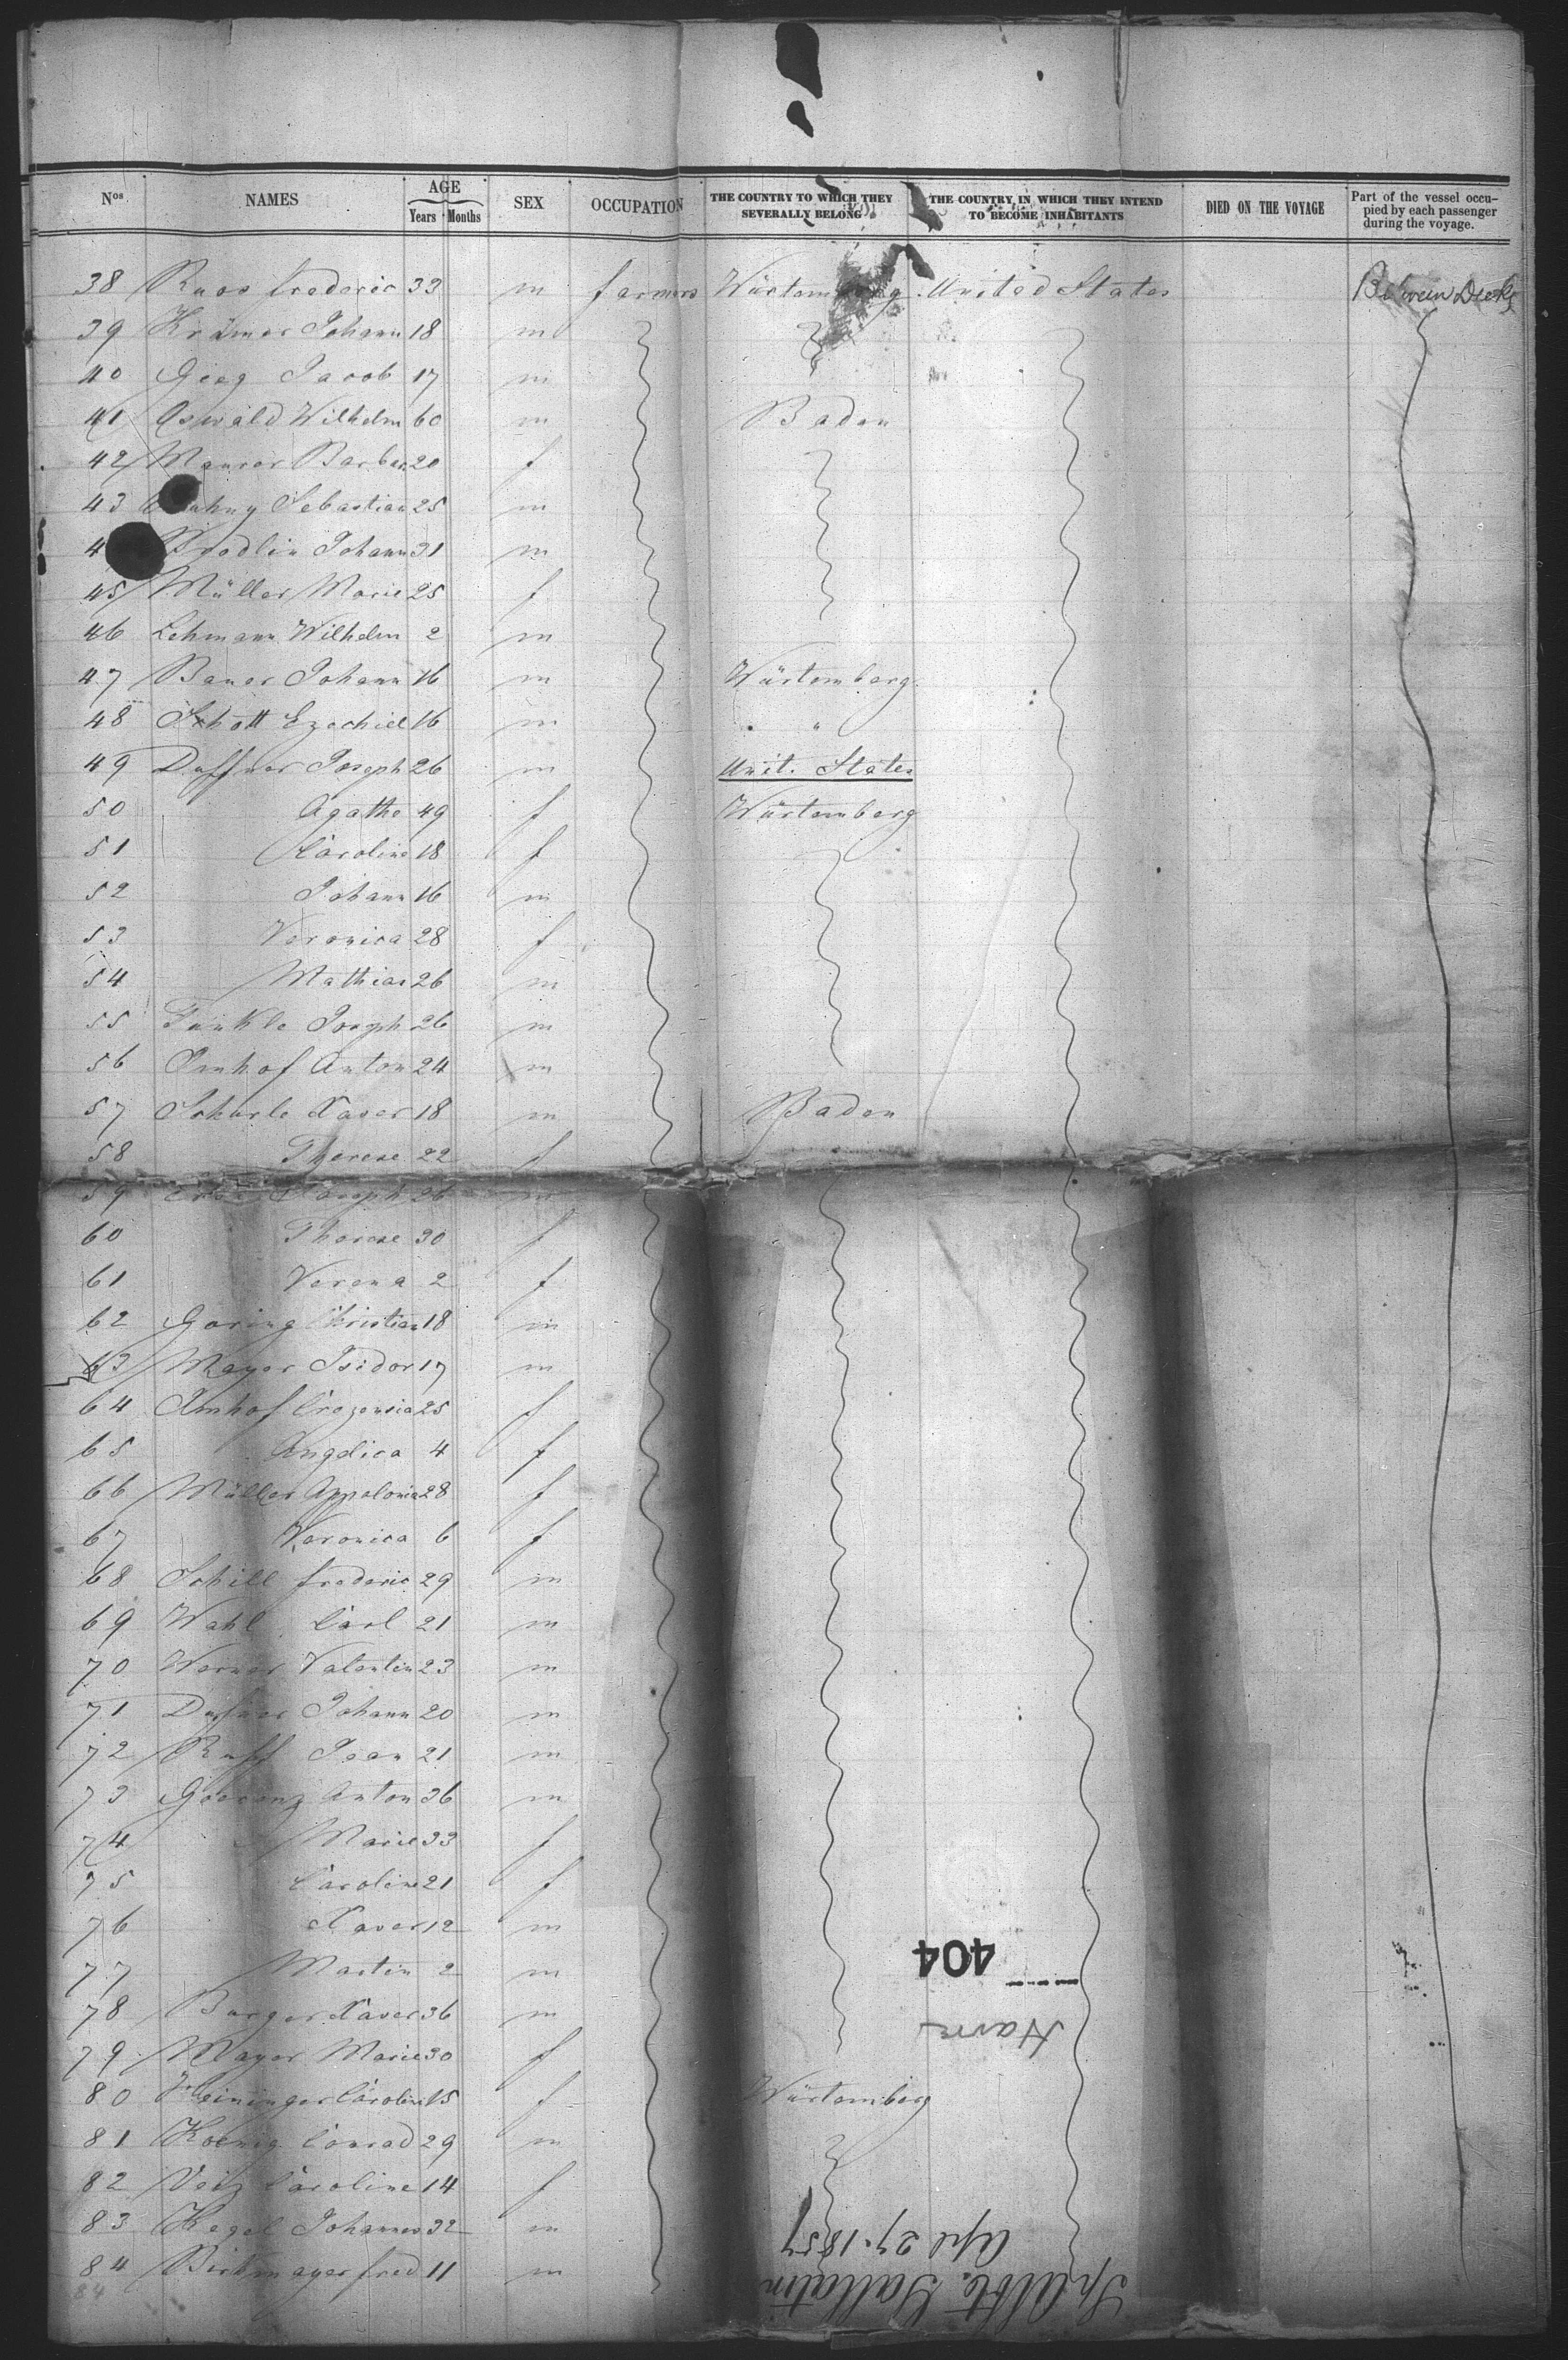 Nos NAMES AGE Years Months SEX OCCUPATION THE COUNTRY TO WHICH THEY SEVERALLY BELONG THE COUNTRY IN WHICH THEY INTEND TO BECOME INHABITANTS DIED ON THE VOYAGE Part of the vessel occupied by each passenger during the voyage.
38 Ruos frederic 33 m farmers Würtemberg United States Between Decks
39 Krämer Johann 18 m
40 Gieg Jacob 17 m
41 Oswald Wilhelm 60 m Baden
42 Maurer Barbar 20 f
43 Sebastian 25 m
4 Brodlin Johann 31 m
45 Müller Marie 25 f
46 Lehmann Wilhelm 2 m
47 Bauer Johann 16 m Würtemberg
48 Schott Ezechiel 16 m " "
49 Duffner Joseph 26 m Unit. States
50 Agathe 49 f Würtemberg
51 Caroline 18 f
52 Johann 16 m
53 Veronica 28 f
54 Mathias 26 m
55 Funkle Joseph 26 m
56 Imhof Anton 24 m
57 Scherle Xaver 18 m Baden
58 Therese 22 f
59 Joseph 26 m
60 Therese 30 f
61 Verena 2 f
62 Goring Christian 18 m
63 Mayer Isidor 17 m
64 Imhof Crezensia 25 f
65 Angelica 4 f
66 Müller Appolonia 28 f
67 Veronica 6 f
68 Schill frederic 29 m
69 Wahl Carl 21 m
70 Werner Valentin 23 m
71 Dufner Johann 20 m
72 Ruff Jean 21 m
73 Anton 36 m
74 Marie 33 f
75 Caroline 21 f
76 Xaver 12 m
77 Martin 2 m
78 Burger Xaver 36 m
79 Mayer Marie 30 f
80 Heininger Caroline 15 f Würtemberg
81 Koenig Conrad 29 m
82 Veiz Caroline 14 f
83 Hegel Johannes 32 m
84 Birkmayer fred 11 m
84
Sp Albt. Gallatin
Apl 27. 1857
Havre
404